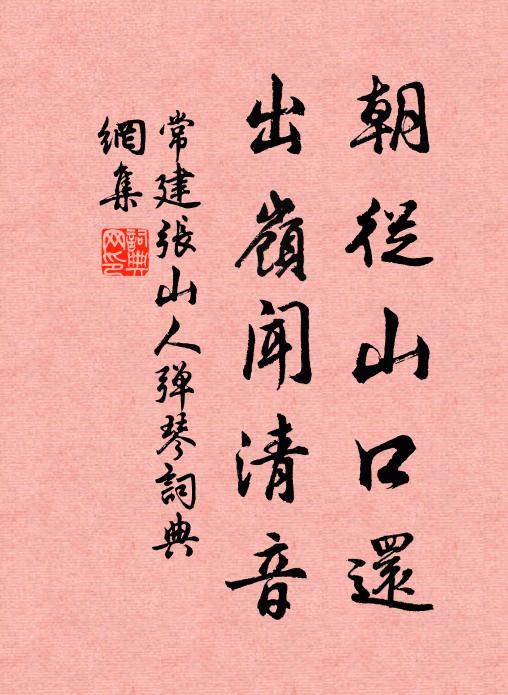 朝從山口還
出嶺聞清音
常建張山人彈琴詞典
網集
詞典
网印